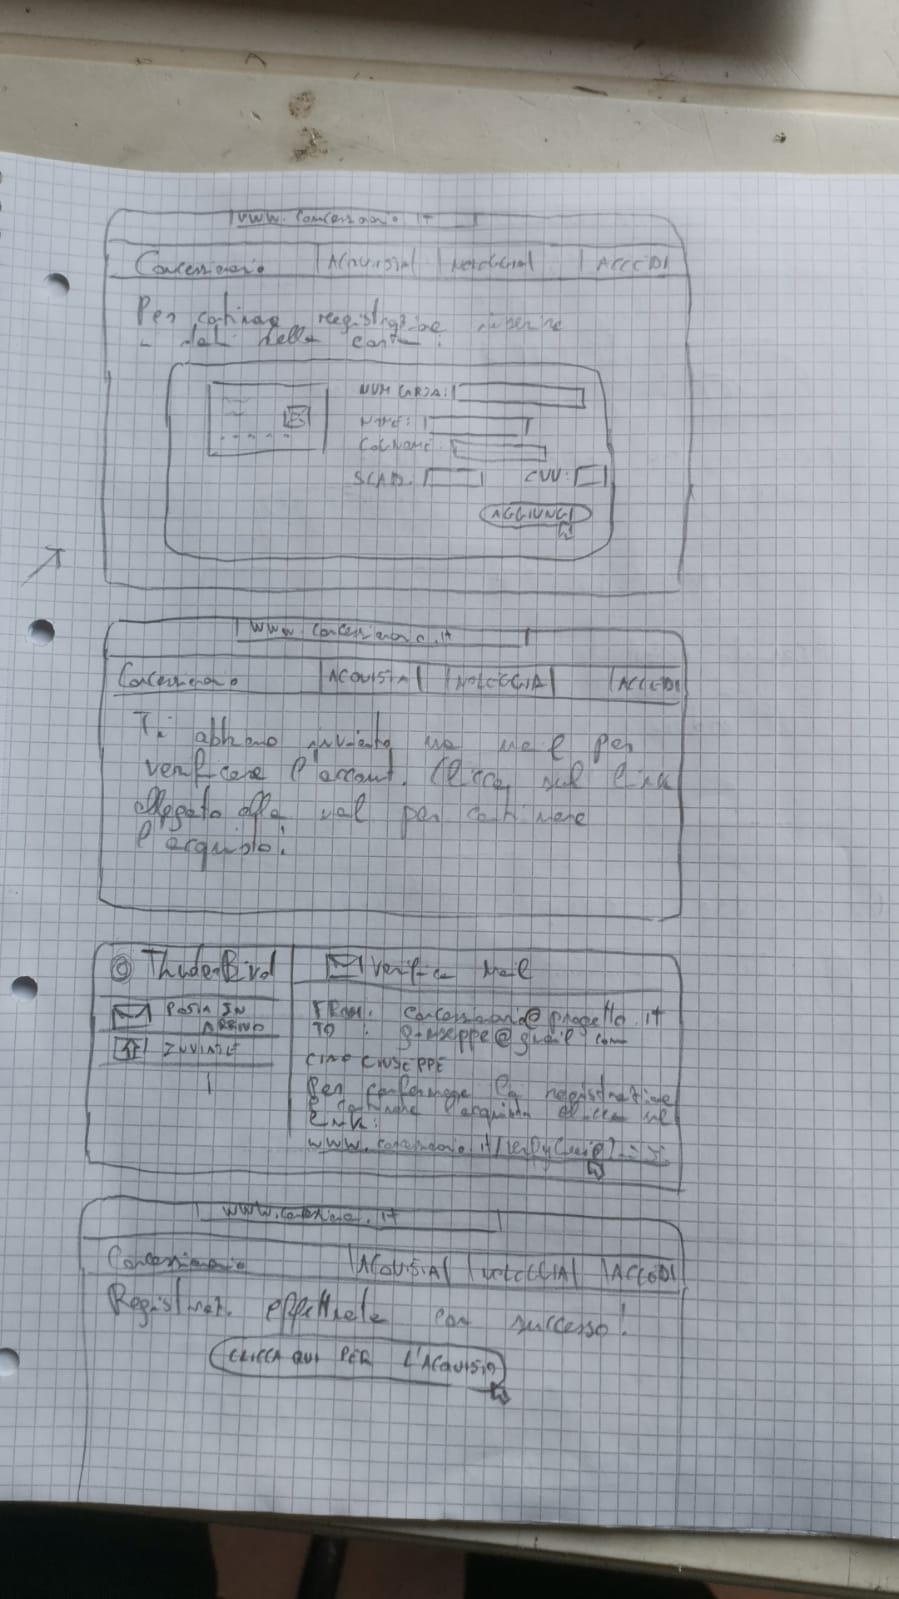 www.concessionario.it
Concessionario ACQUISTA NOLEGGIA ACCEDI
Per continuare registrazione inserire
i dati della carta:
NUM CARTA:
NOME:
COGNOME:
SCAD. CVV:
AGGIUNGI
www.concessionario.it
Concessionario ACQUISTA NOLEGGIA ACCEDI
Ti abbiamo inviato una mail per
verificare l'account. Clicca sul link
allegato alla mail per continuare
l'acquisto!
ThuderBird Verifica Mail
POSTA IN
ARRIVO
INVIATE
FROM: concessionario@progetto.it
TO : giuseppe@gmail.com
CIAO GIUSEPPE
Per confermare la registrazione
e continuare l'acquisto clicca nel
link:
www.concessionario.it/verify
www.concessionario.it
Concessionario ACQUISTA NOLEGGIA ACCEDI
Registraz. effettuata con successo!
CLICCA QUI PER L'ACQUISTO